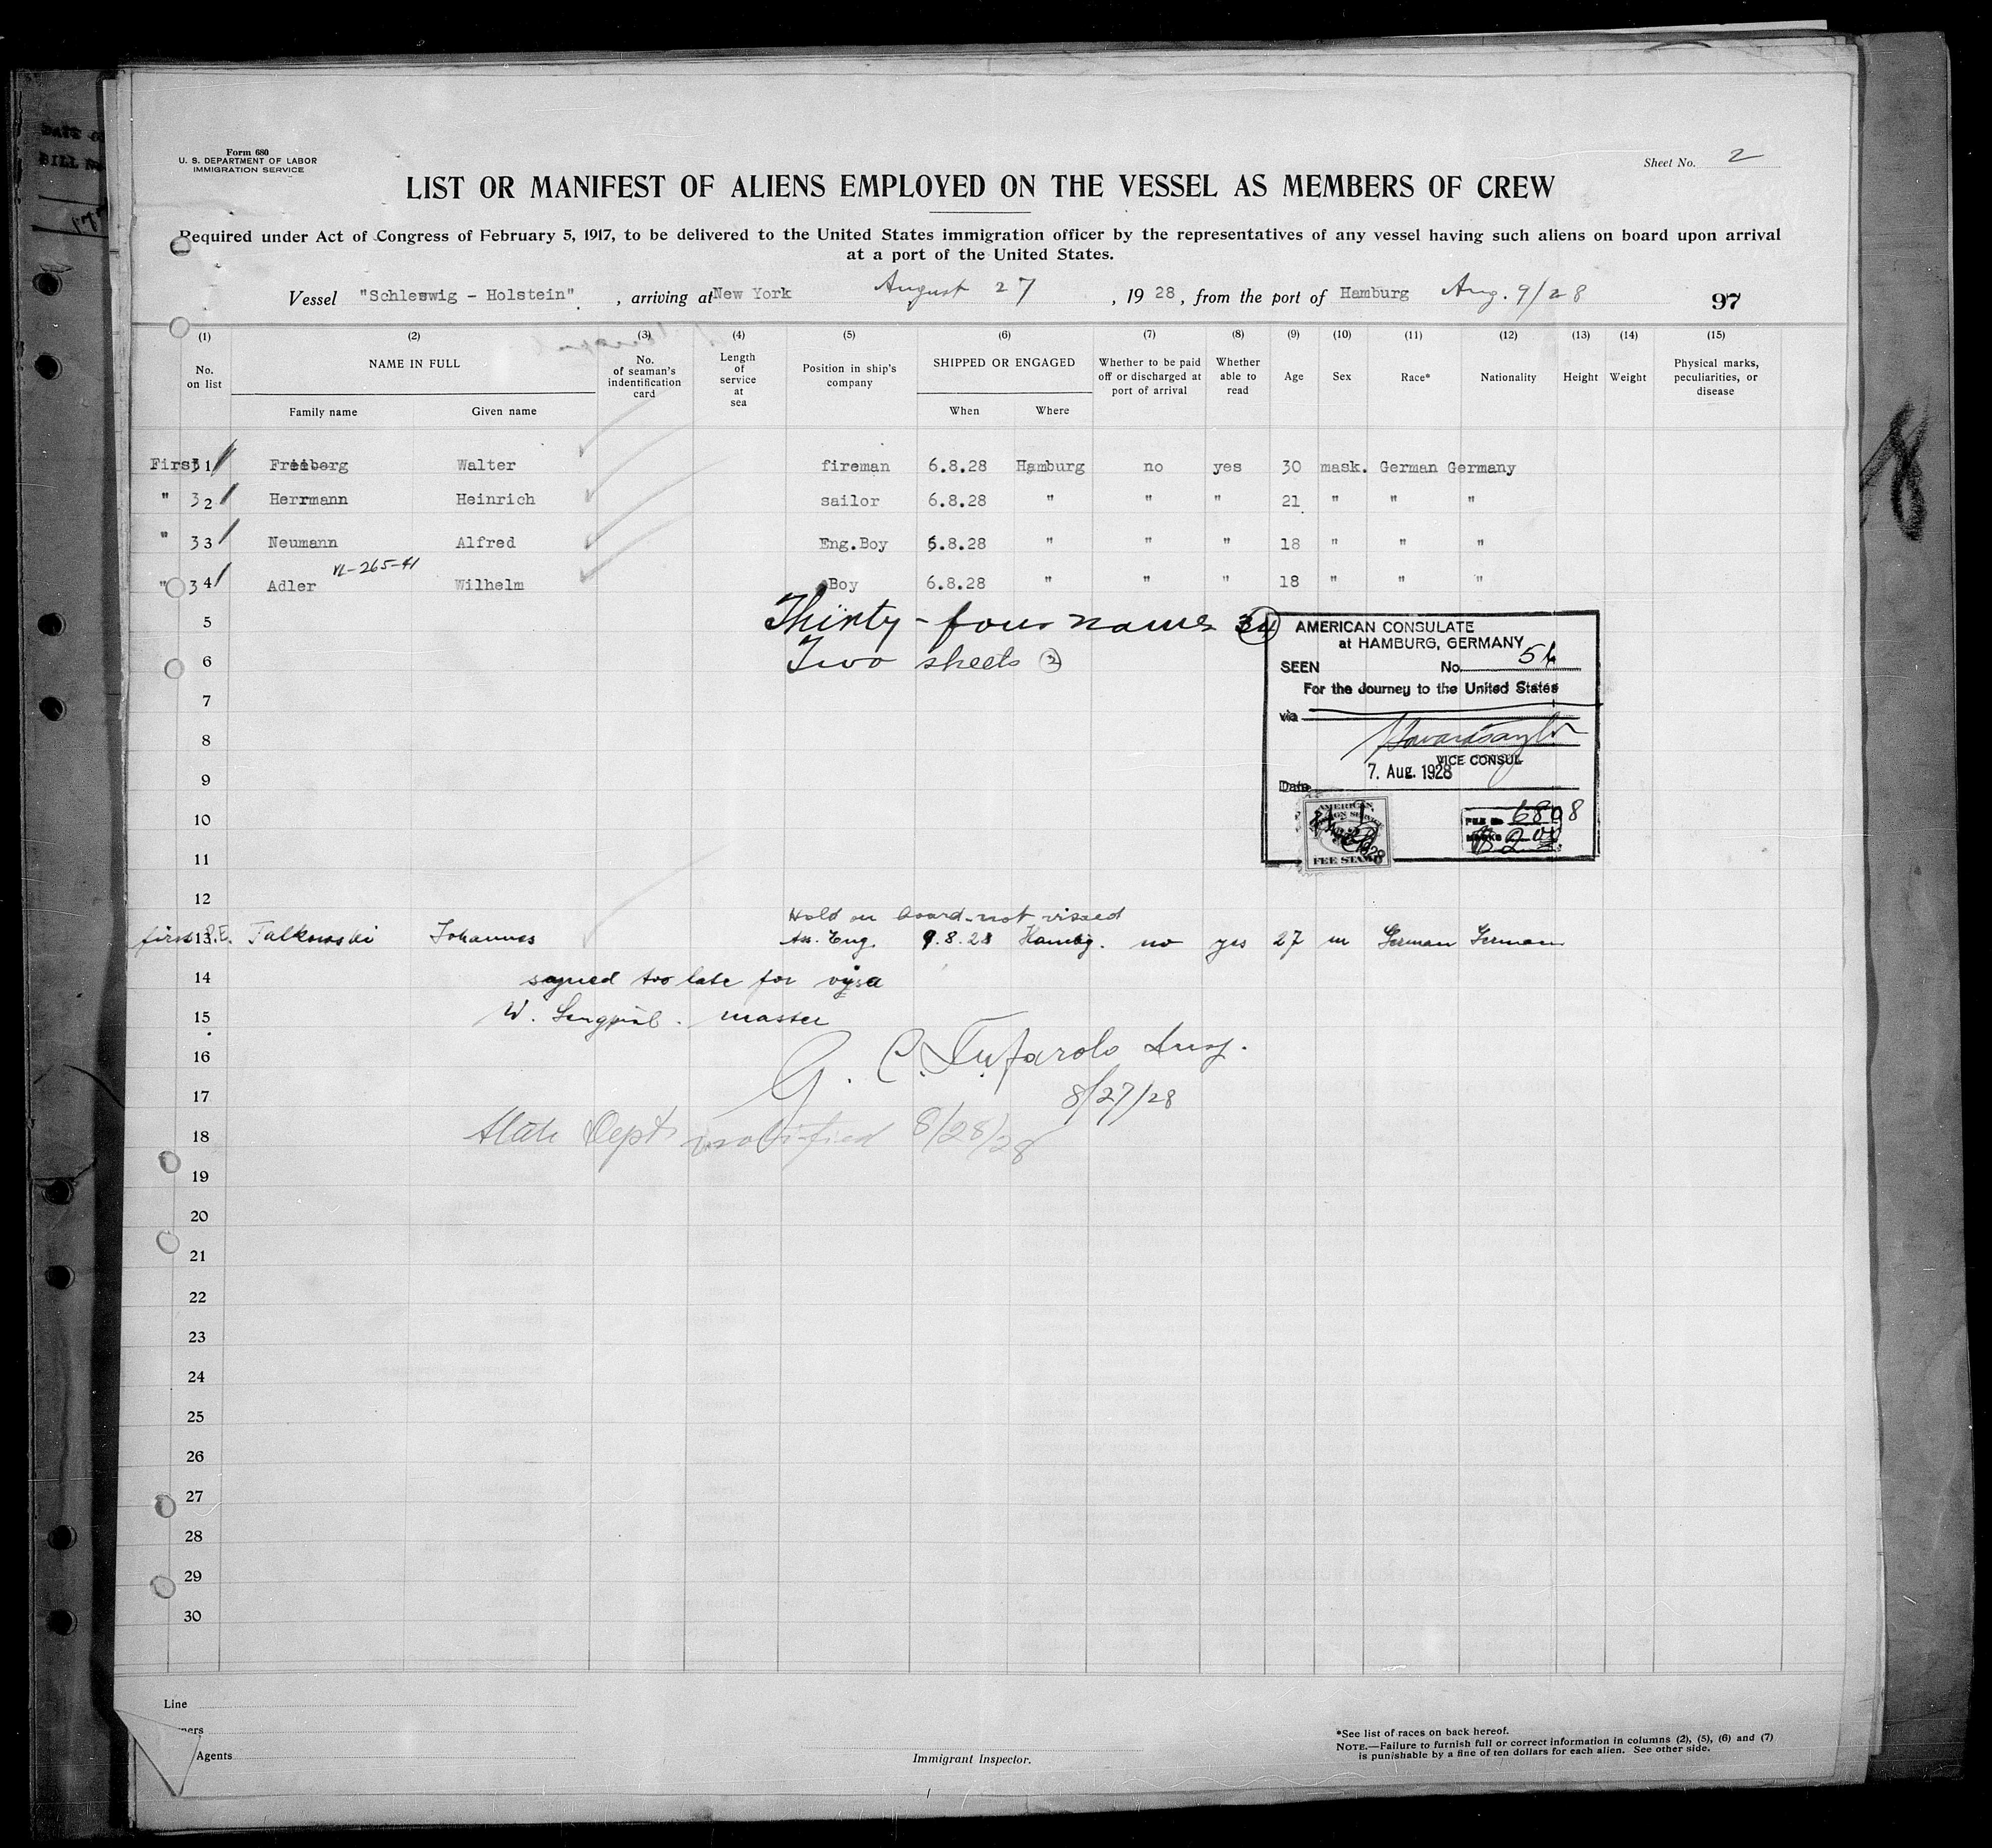 DATE OF
BILL No
Form 680
U. S. DEPARTMENT OF LABOR
IMMIGRATION SERVICE
Sheet No. 2
LIST OR MANIFEST OF ALIENS EMPLOYED ON THE VESSEL AS MEMBERS OF CREW
Required under Act of Congress of February 5, 1917, to be delivered to the United States immigration officer by the representatives of any vessel having such aliens on board upon arrival
at a port of the United States.
Vessel "Schleswig - Holstein", arriving at New York August 27, 1928, from the port of Hamburg Aug. 9/28 97
(1) (2) (3) (4) (5) (6) (7) (8) (9) (10) (11) (12) (13) (14) (15)
No. on list NAME IN FULL No. of seaman's indentification card Length of service at sea Position in ship's company SHIPPED OR ENGAGED Whether to be paid off or discharged at port of arrival Whether able to read Age Sex Race* Nationality Height Weight Physical marks, peculiarities, or disease
Family name Given name When Where
First 31 Freiberg Walter fireman 6.8.28 Hamburg no yes 30 mask. German Germany
" 32 Herrmann Heinrich sailor 6.8.28 " " " 21 " " "
" 33 Neumann Alfred Eng.Boy 6.8.28 " " " 18 " " "
VL-265-41
" 34 Adler Wilhelm Boy 6.8.28 " " " 18 " " "
5 Thirty-four names 34
6 Two sheets 2
AMERICAN CONSULATE
at HAMBURG, GERMANY
SEEN No. 54
For the Journey to the United States
via
VICE CONSUL
Date 7. Aug. 1928
AMERICAN
FEE STAMP
6808
7
8
9
10
11
12
Hold on board-not visaed
first P.E. 13 Falkowski Johannes As. Eng. 9.8.28 Hambg. no yes 27 m German German
14 signed too late for visa
15 W. master
16 G. C. Tufarolo Insp.
17 8/27/28
18 State Dept notified 8/28/28
19
20
21
22
23
24
25
26
27
28
29
30
Line
ners
Agents
Immigrant Inspector.
*See list of races on back hereof.
NOTE.—Failure to furnish full or correct information in columns (2), (5), (6) and (7)
is punishable by a fine of ten dollars for each alien. See other side.